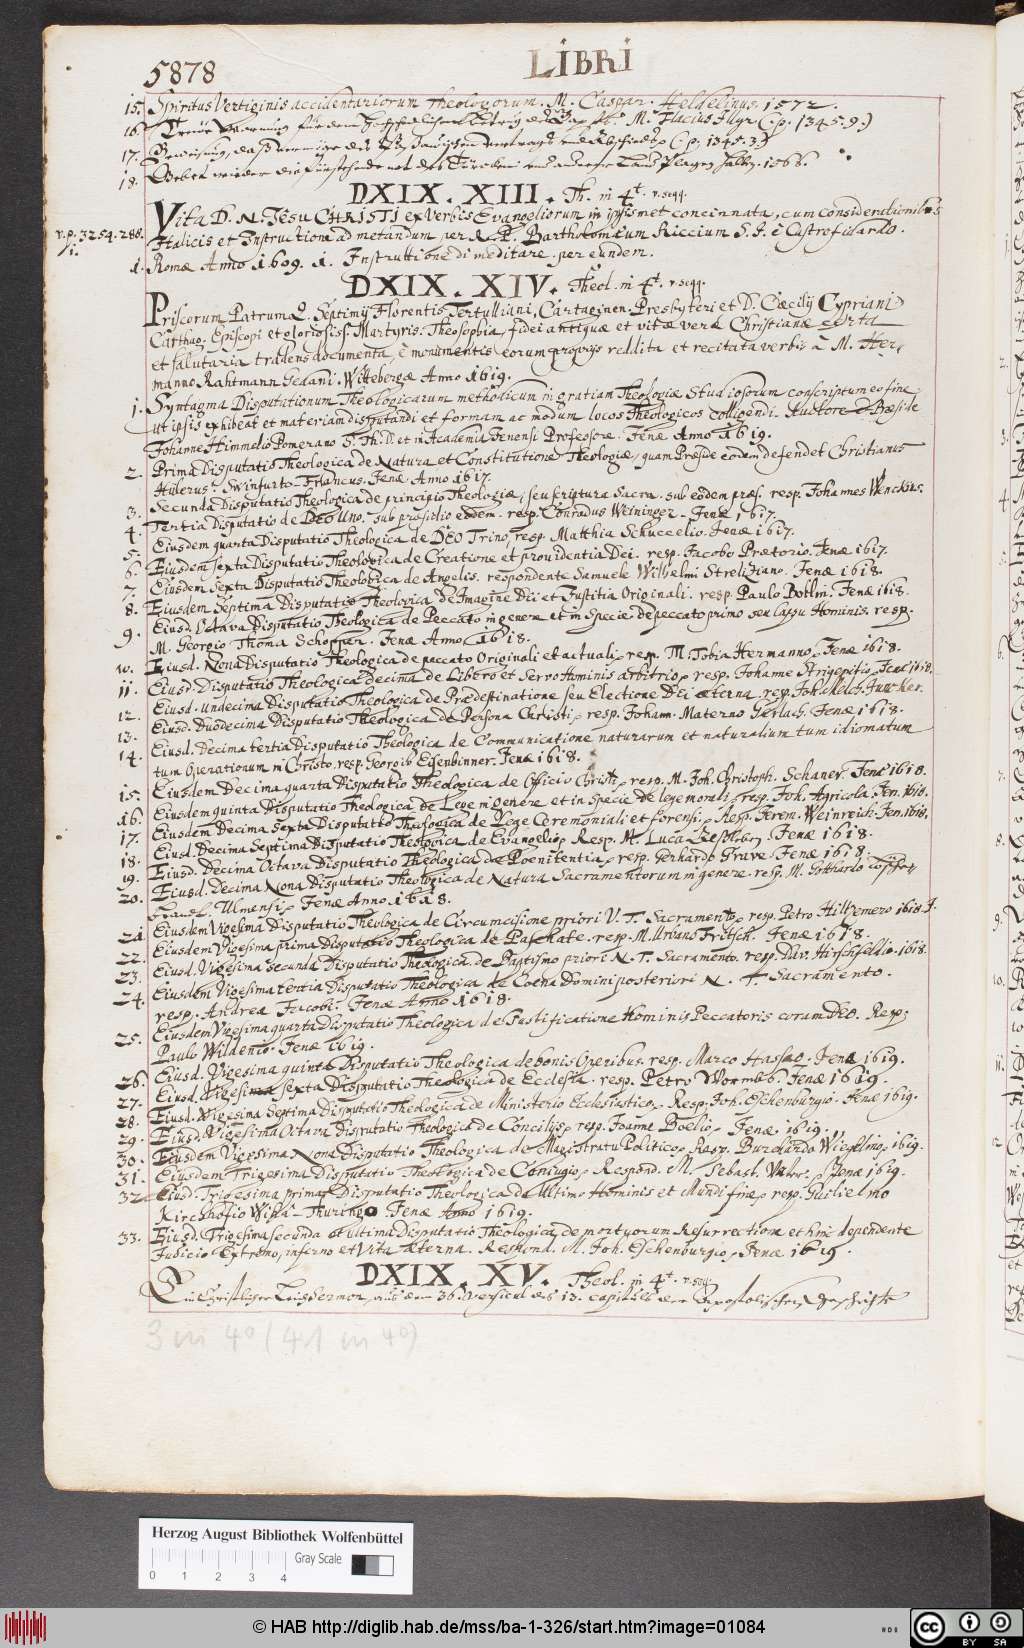 5878
LIBRI
15. Spiritus Vertiginis accidentariorum Theologorum. M. Caspar. Heldelinus. 1572.
16. M. Flacius Illyr. (p. 1345.9.)
17. (p. 1345.3.)
18. 1566.
DXIX. XIII. Th. in 4t. v. seqq.
Vita D. N. Jesu CHRISTI ex Verbis Evangeliorum in ipsismet concinnata, cum considerationibus
v. p. 3254. 288.
Italicis et Instructione ad metandum per R. P. Bartholomæum Riccium S. J. è Castrofidardo.
1.
1. Romæ Anno 1609. 1. Instruttione di meditare. per eundem.
DXIX. XIV. Theol. in 4t. v. seqq.
Priscorum Patrum Q. Septimij Florentis Tertulliani, Cartaginen. Presbyteri et D. Cæcilij Cypriani
Carthag. Episcopi et gloriosiss. Martyris. Theosophia, fidei antiquæ et vitæ veræ Christianæ certa
et salutaria tradens documenta, è monumentis eorum proprijs reddita et recitata verbis à M. Her,
manno Rahtmann Gedani. Wittebergæ Anno 1619.
1. Syntagma Disputationum Theologicarum methodicum in gratiam Theologiæ Studiosorum conscriptum eo fine
ut ipsis exhibeat et materiam disputandi et formam ac modum locos Theologicos colligendi. Auctore et Præside
Johanne Himmelio Pomerano S. Th. D. et in Academia Jenensi Professore. Jenæ Anno 1619.
2. Prima Disputatio Theologica de Natura et Constitutione Theologiæ, quam Præside eodem defendet Christianus
Hülerus. Swinfurto-Francus. Jenæ Anno 1617.
3. Secunda Disputatio Theologica de principio Theologiæ, seu scriptura Sacra. sub eodem præs. resp. Johannes Wenckius.
4. Tertia Disputatio de DEO Uno. sub præsidio eodem. resp. Conradus Weininger. Jenæ 1617.
5. Eiusdem quarta Disputatio Theologica de DEO Trino, resp. Matthia Schuccelio. Jenæ 1617.
6. Eiusdem sexta Disputatio Theologica de Creatione et providentia Dei. resp. Jacobo Prætorio. Jenæ 1617.
7. Eiusdem Sexta Disputatio Theologica de Angelis. respondente Samuele Wilhelmi Streliziano. Jenæ 1618.
8. Eiusdem Septima Disputatio Theologica De Imagine Dei et Justitia Originali. resp. Paulo Bottin. Jenæ 1618.
9. Eiusd. Octava Disputatio Theologica de Peccato in genere et in Specie de peccato primo seu Lapsu Hominis. resp.
M. Georgio Thoma Schopper. Jenæ Anno 1618.
10. Eiusd. Nona Disputatio Theologica de peccato Originali et actuali, resp. M. Tobia Hermanno. Jenæ 1618.
11. Eiusd. Disputatio Theologica decima de Libero et Servo Hominis arbitrio, resp. Johanne Strigepetio. Jenæ 1618.
12. Eiusd. undecima Disputatio Theologica de Prædestinatione seu Electione Dei æterna. resp. Joh. Melch. Juncker.
13. Eiusd. Duodecima Disputatio Theologica de Persona Christi, resp. Johann. Materno Gerlach. Jenæ 1618.
14. Eiusd. Decima tertia Disputatio Theologica de Communicatione naturarum et naturalium tum idiomatum
tum Operationum in Christo. resp. Georgio Eisenbinner. Jenæ 1618.
15. Eiusdem Decima quarta Disputatio Theologica de Officio Christi, resp. M. Joh. Christoph. Schaner. Jenæ 1618.
16. Eiusdem quinta Disputatio Theologica de Lege in genere et in Specie de lege morali. resp. Joh. Agricola. Jen. 1618.
17. Eiusdem Decima Sexta Disputatio Theologica de Lege Ceremoniali et forensi. Resp. Jerem. Weinreich. Jen. 1618.
18. Eiusd. Decima Septima Disputatio Theologica de Evangelio, Resp. M. Luca. Jenæ 1618.
19. Eiusd. Decima Octava Disputatio Theologica de Poenitentia, resp. Gerhardo Grave. Jenæ 1618.
20. Eiusd. Decima Nona Disputatio Theologica de Natura Sacramentorum in genere. resp. M. Gotthardo
Ulmensi. Jenæ Anno 1618.
21. Eiusdem Vigesima Disputatio Theologica de Circumcisione priori V. T. Sacramento, resp. Petro Hilgemero 1618. J.
22. Eiusdem Vigesima prima Disputatio Theologica de Paschate. resp. M. Urbano Fritsch. Jenæ 1618.
23. Eiusd. Vigesima secunda Disputatio Theologica de Baptismo priori N. T. Sacramento. resp. Dav. Hirschfeldio. 1618.
24. Eiusdem Vigesima tertia Disputatio Theologica de Coena Domini posteriori N. T. Sacramento.
resp. Andrea Jacobi. Jenæ Anno 1618.
25. Eiusdem Vigesima quarta Disputatio Theologica de Justificatione Hominis Peccatoris coram DEO. Resp.
Paulo Wildenio. Jenæ 1619.
26. Eiusd. Vigesima quinta Disputatio Theologica de bonis Operibus. resp. Marco Hassæo. Jenæ 1619.
27. Eiusd. Vigesima sexta Disputatio Theologica de Ecclesia. resp. Petro Wormbs. Jenæ 1619.
28. Eiusd. Vigesima Septima Disputatio Theologica de Ministerio Ecclesiastico, Resp. Joh. Eschenburgio. Jenæ 1619.
29. Eiusd. Vigesima Octava Disputatio Theologica de Concilijs, resp. Joanne Boelio, Jenæ 1619.
30. Eiusdem Vigesima Nona Disputatio Theologica de Magistratu Politico, Resp. Burchardo Wieselino, 1619.
31. Eiusdem Trigesima Disputatio Theologica de Coniugio, Respond. M. Sebast. Jenæ 1619.
32. Eiusd. Trigesima prima Disputatio Theologica de Ultimo Hominis et Mundi fine, resp. Guilielmo
Kirchhofio Wisâ-Thuringo. Jenæ Anno 1619.
33. Eiusd. Trigesima secunda et ultima Disputatio Theologica, de mortuorum Resurrectione et hinc dependente
Judicio Extremo, inferno et Vita Æterna. Respond. M. Joh. Eschenburgio, Jenæ 1619.
DXIX. XV. Theol. in 4t. v. seqq.
Ein Christlicher Leich Sermon, aus dem 36. Versicul des 13. Capituls der Apostolischen Geschichte
3 in 4° (41 in 4°)
Herzog August Bibliothek Wolfenbüttel
Gray Scale
0 1 2 3 4
© HAB http://diglib.hab.de/mss/ba-1-326/start.htm?image=01084
cc BY SA